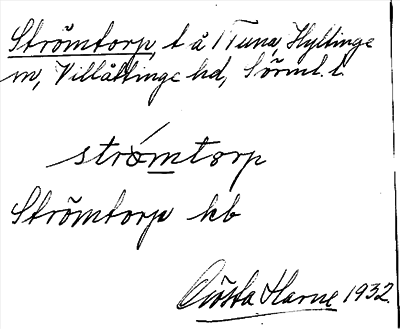 Strömtorp, t å Tuna, Hyltinge
sn, Villåttinge hd, Sörml. l.
strö́mtorp
Strömtorp kb
Gösta Harne 1932.